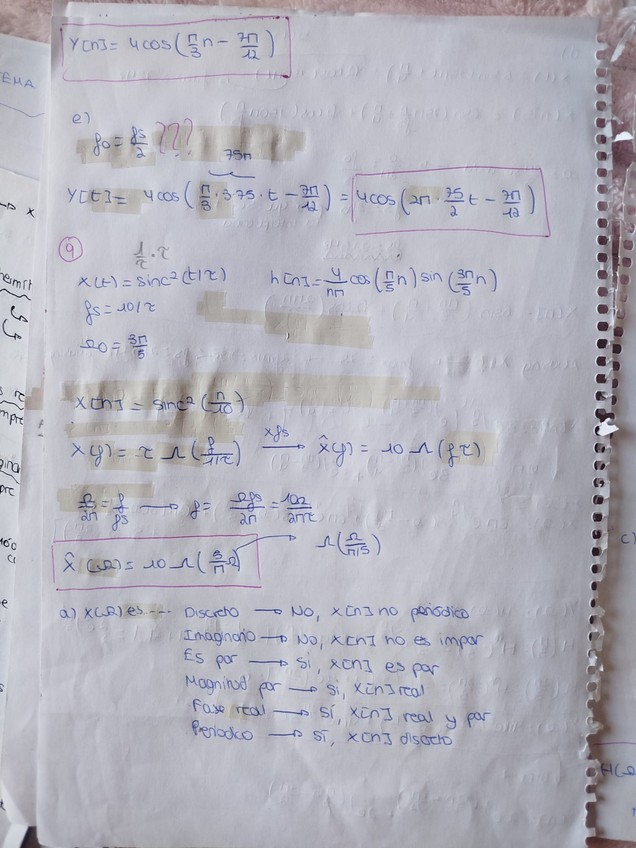 Y[n] = 4cos(π/3 n - 7π/12)
e)
fo = fs/2 ???
75π
Y[t] = 4cos(π/3 · 375 · t - 7π/12) = 4cos(2π · 75/2 t - 7π/12)
9
1/τ · τ
x(t) = sinc²(t/τ) h[n] = 4/nπ cos(π/5 n) sin(3π/5 n)
fs = 10/τ
Ωo = 3π/5
x[n] = sinc²(n/10)
X(f) = τ Λ(f/1/τ) xfs → X̂(f) = 10 Λ(fτ)
Ω/2π = f/fs → f = Ωfs/2π = 10Ω/2πτ
X̂(Ω) = 10 Λ(5/π Ω) → Λ(Ω/π/5)
a) X(Ω) es ---- Discreto → No, x[n] no periódico
Imaginario → No, x[n] no es impar
Es par → Si, x[n] es par
Magnitud par → Si, x[n] real
Fase real → Sí, x[n] real y par
Periodico → Sí, x[n] discreto
TEMA
H(Ω
c)